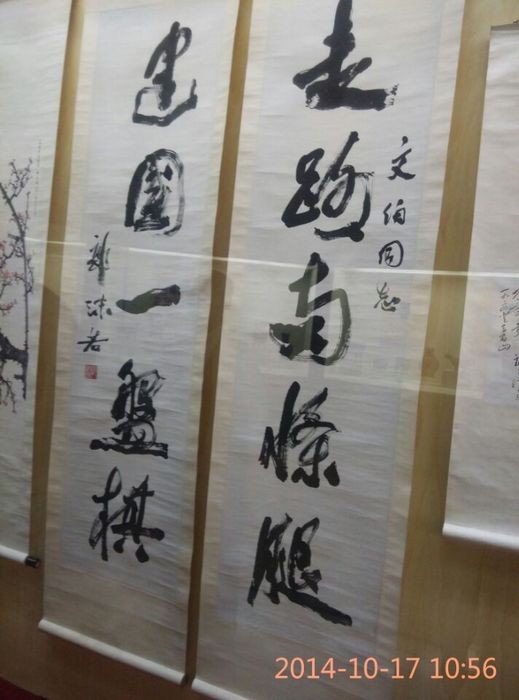 文伯同志
走路两條腿
建國一盤棋
郭沫若
2014-10-17 10:56